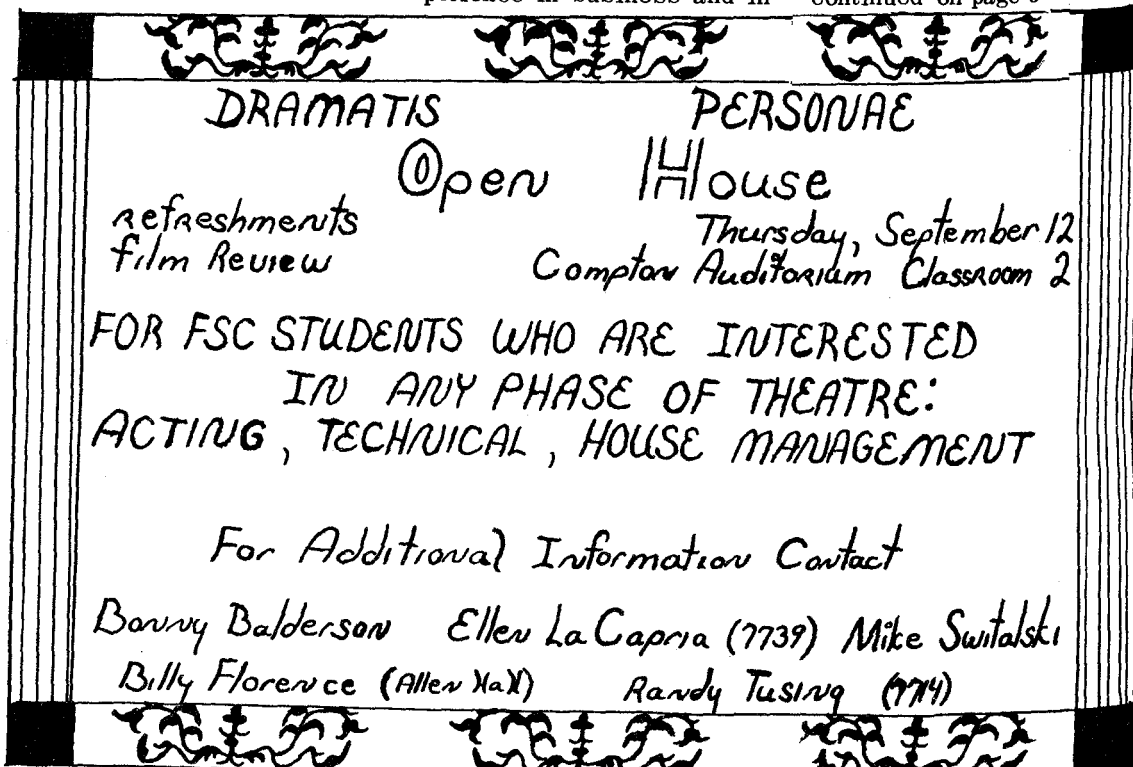 continued on page
DRAMATIS PERSONAE
Open House
refreshments Thursday, September 12
film Review Compton Auditorium Classroom 2
FOR FSC STUDENTS WHO ARE INTERESTED
IN ANY PHASE OF THEATRE:
ACTING, TECHNICAL, HOUSE MANAGEMENT
For Additional Information Contact
Bonny Balderson Ellen La Capria (7739) Mike Switalski
Billy Florence (Allen Hall) Randy Tusing (7714)